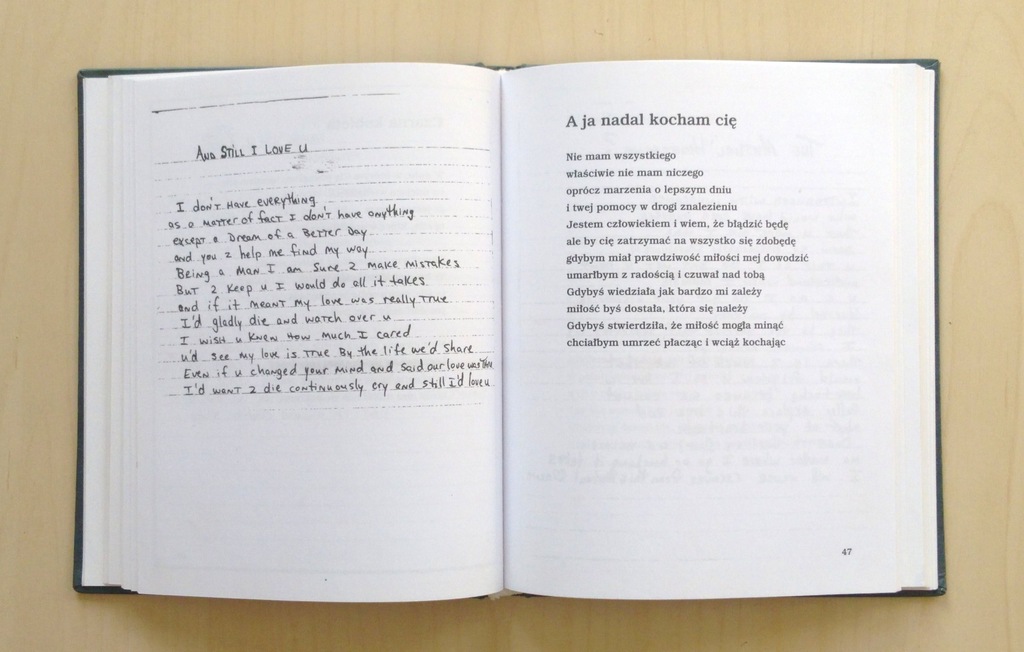 And Still I Love U
I don't have everything
as a matter of fact I don't have anything
except a Dream of a Better Day
and you 2 help me find my way
Being a Man I am sure 2 make mistakes
But 2 keep u I would do all it takes
and if it meant my love was really true
I'd gladly die and watch over u
I wish u knew how much I cared
u'd see my love is true By the life we'd share
Even if u changed your mind and said our love was thru
I'd want 2 die continuously cry and still I'd love u
A ja nadal kocham cię
Nie mam wszystkiego
właściwie nie mam niczego
oprócz marzenia o lepszym dniu
i twej pomocy w drogi znalezieniu
Jestem człowiekiem i wiem, że błądzić będę
ale by cię zatrzymać na wszystko się zdobędę
gdybym miał prawdziwość miłości mej dowodzić
umarłbym z radością i czuwał nad tobą
Gdybyś wiedziała jak bardzo mi zależy
miłość byś dostała, która się należy
Gdybyś stwierdziła, że miłość mogła minąć
chciałbym umrzeć płacząc i wciąż kochając
47